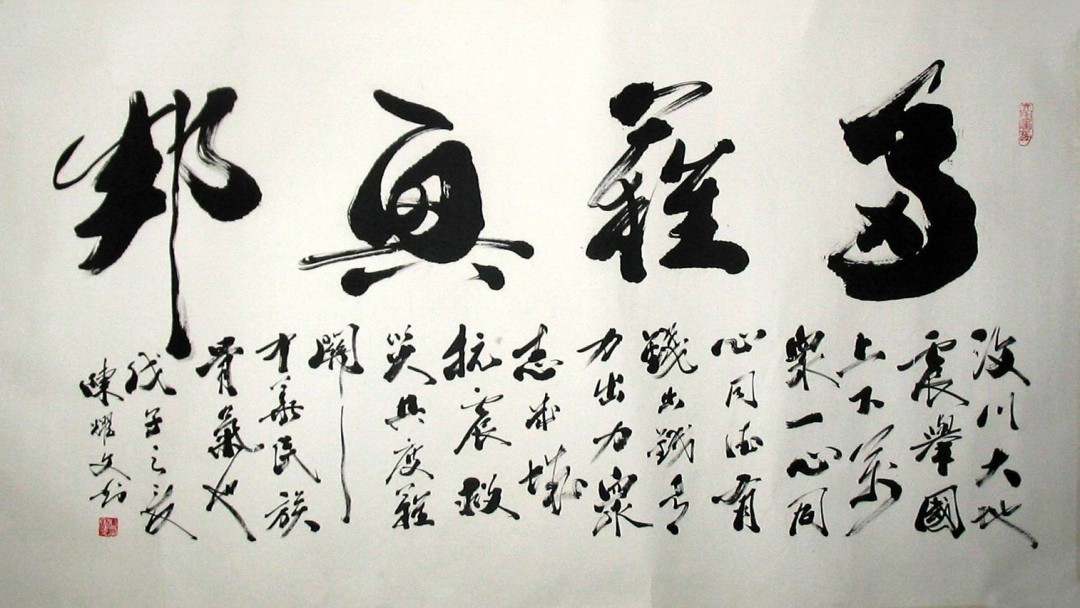 多難興邦
汶川大地
震舉國
上下萬
衆一心同
心同德有
錢出錢有
力出力衆
志成城
抗震救
災共度難
關
中華民族
骨氣也
戊子之夏
陳耀文书